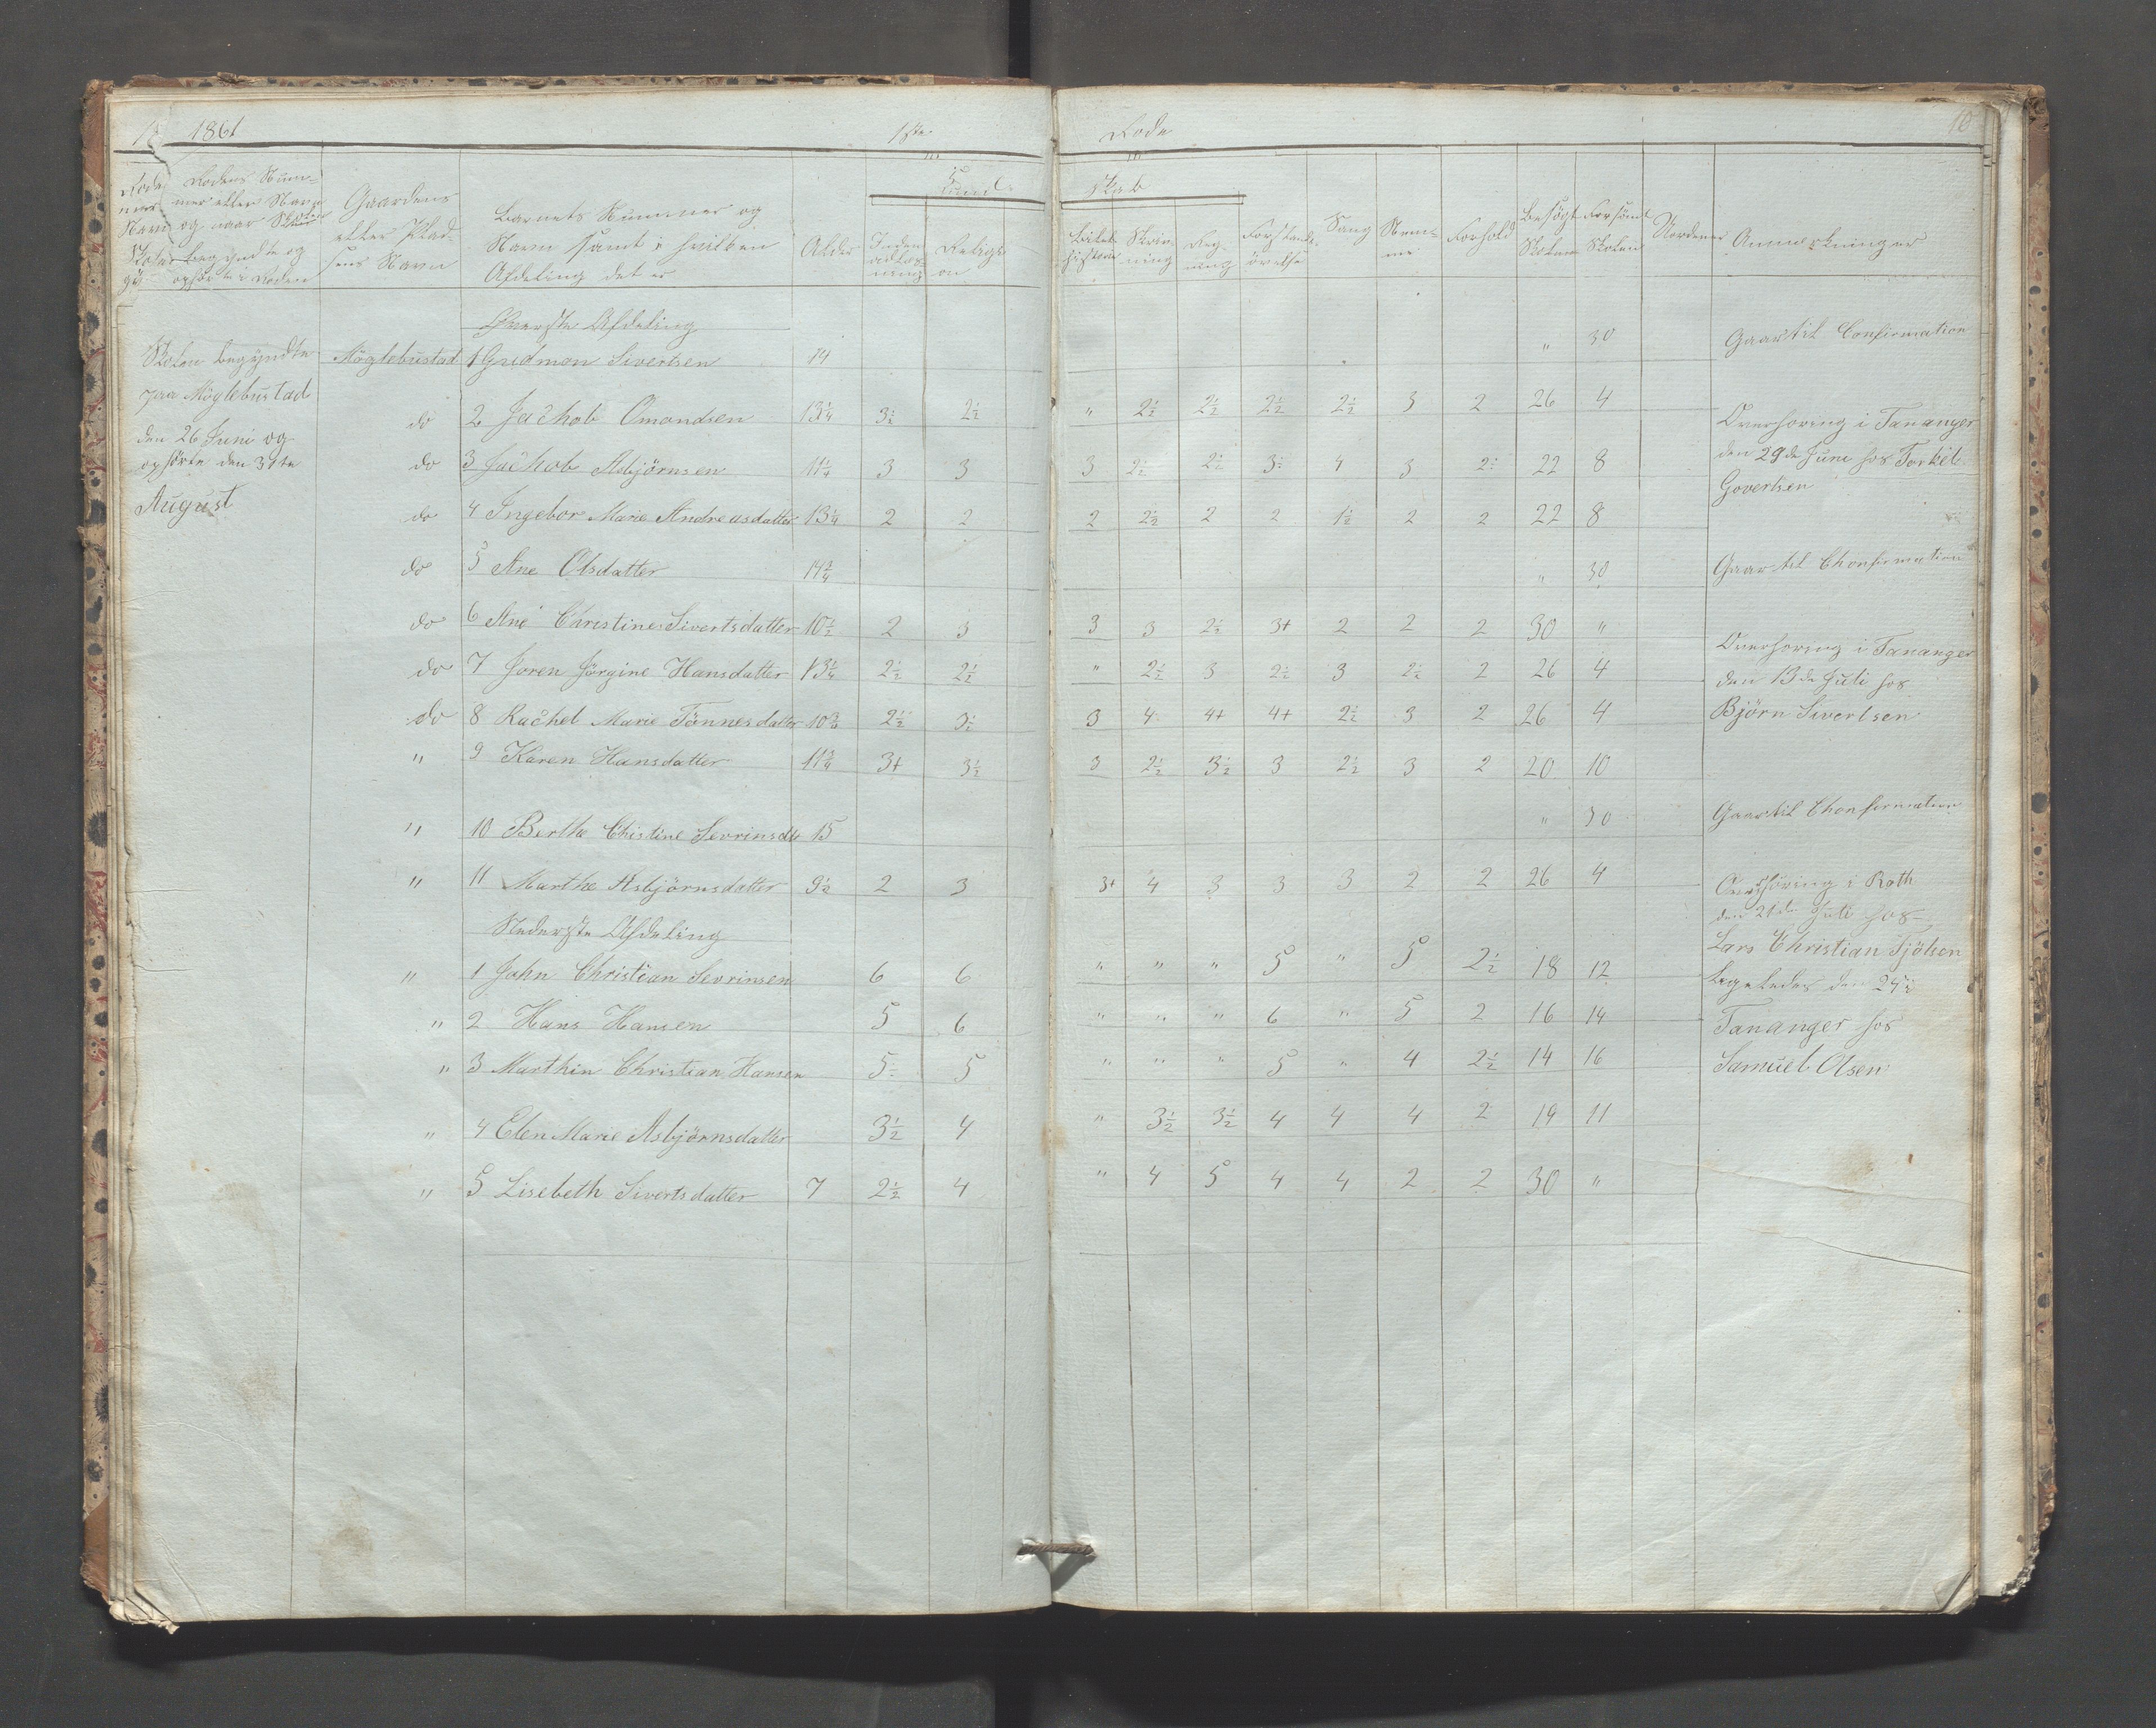 1861 1ste Rode 10
Rodens Num-
mer eller Navn
og naar Skolen
begyndte og
ophörte i Roden
Gaardens
eller Plad-
sens Navn
Barnets Nummer og
Navn samt i hvilken
Afdeling det er
Alder
Religi-
on
Kund
skab
Bibel-
historie
Skriv-
ning
Reg-
ning
Forstands-
övelse
Sang
Nem-
me
Forhold
Besögt
Skolen
Forsömt
Skolen
Anmerkninger
Överste Afdeling
Skolen begyndte
paa Möglebustad
den 26 Juni og
ophörte den 31te
August
Möglebustad 1 Gudmon Sivertsen 14 " 30 Gaar til Confirmation
do 2 Jachob Omondsen 13¼ 3½ 2½ " 2½ 2½ 2½ 2½ 3 2 26 4
do 3 Jachob Asbjörnsen 11¼ 3 3 3 2½ 2½ 3½ 4 3 2½ 22 8
do 4 Ingebor Marie Andreasdatter 13¼ 2 2 2 2½ 2 2 1½ 2 2 22 8
Overhöring i Tananger
den 29de Juni hos Torkel
Govertsen
do 5 Ane Olsdatter 14¾ " 30 Gaar til Chonfirmation
do 6 Ane Christine Sivertsdatter 10½ 2 3 3 3 2½ 3+ 2 2 2 30 "
do 7 Joren Jörgine Hansdatter 13¼ 2½ 2½ " 2½ 3 2½ 3 2½ 2 26 4
do 8 Rachel Marie Tönnesdatter 10¾ 2½ 3½ 3 4 4+ 4+ 2½ 3 2 26 4
Overhöring i Tananger
den 13de Juli hos
Björn Sivertsen
" 9 Karen Hansdatter 11¾ 3+ 3½ 3 2½ 3½ 3 2½ 3 2 20 10
" 10 Berthe Christine Sevrinsdtr 15 " 30 Gaar til Chonfirmation
" 11 Marthe Asbjörnsdatter 9½ 2 3 3+ 4 3 3 3 2 2 26 4
Nederste Afdeling
" 1 John Christian Sevrinsen 6 6 " " " 5 " 5 2½ 18 12
" 2 Hans Hansen 5 6 " " " 6 " 5 2 16 14
" 3 Marthin Christian Hansen 5 5 " " " 5 " 4 2½ 14 16
" 4 Elen Marie Asbjörnsdatter 3½ 4 " 3½ 3½ 4 4 4 2 19 11
" 5 Lisebeth Sivertsdatter 7 2½ 4 " 4 5 4 4 2 2 30 "
Overhöring i Roth
den 21de Juli hos
Lars Christian Tjölsen
Ligeledes den 27 i
Tananger hos
Samuel Olsen